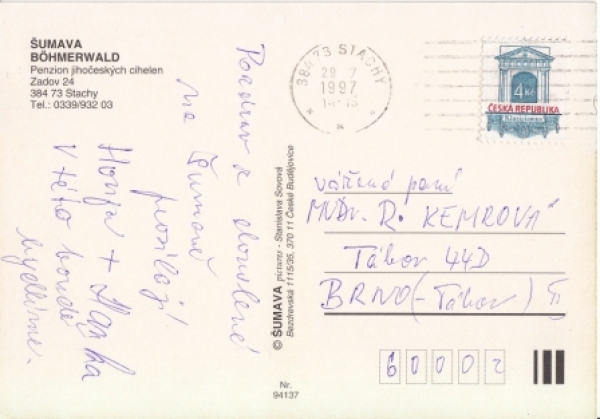 ŠUMAVA
BÖHMERWALD
Penzion jihočeských cihelen
Zadov 24
384 73 Stachy
Tel.: 0339/932 03
Pozdrav z dovolené
na Šumavě
posílají
V této boudě
bydlíme.
© ŠUMAVA pictures - Stanislava Sovová
Bezdrevská 1115/35, 370 11 České Budějovice
Nr.
94137
384 73 STACHY
29 7
1997
4 Kč
ČESKÁ REPUBLIKA
Klasicismus
vážená paní
MUDr. R. KEMROVÁ
Tábor 44D
BRNO (-Tábor)
60002